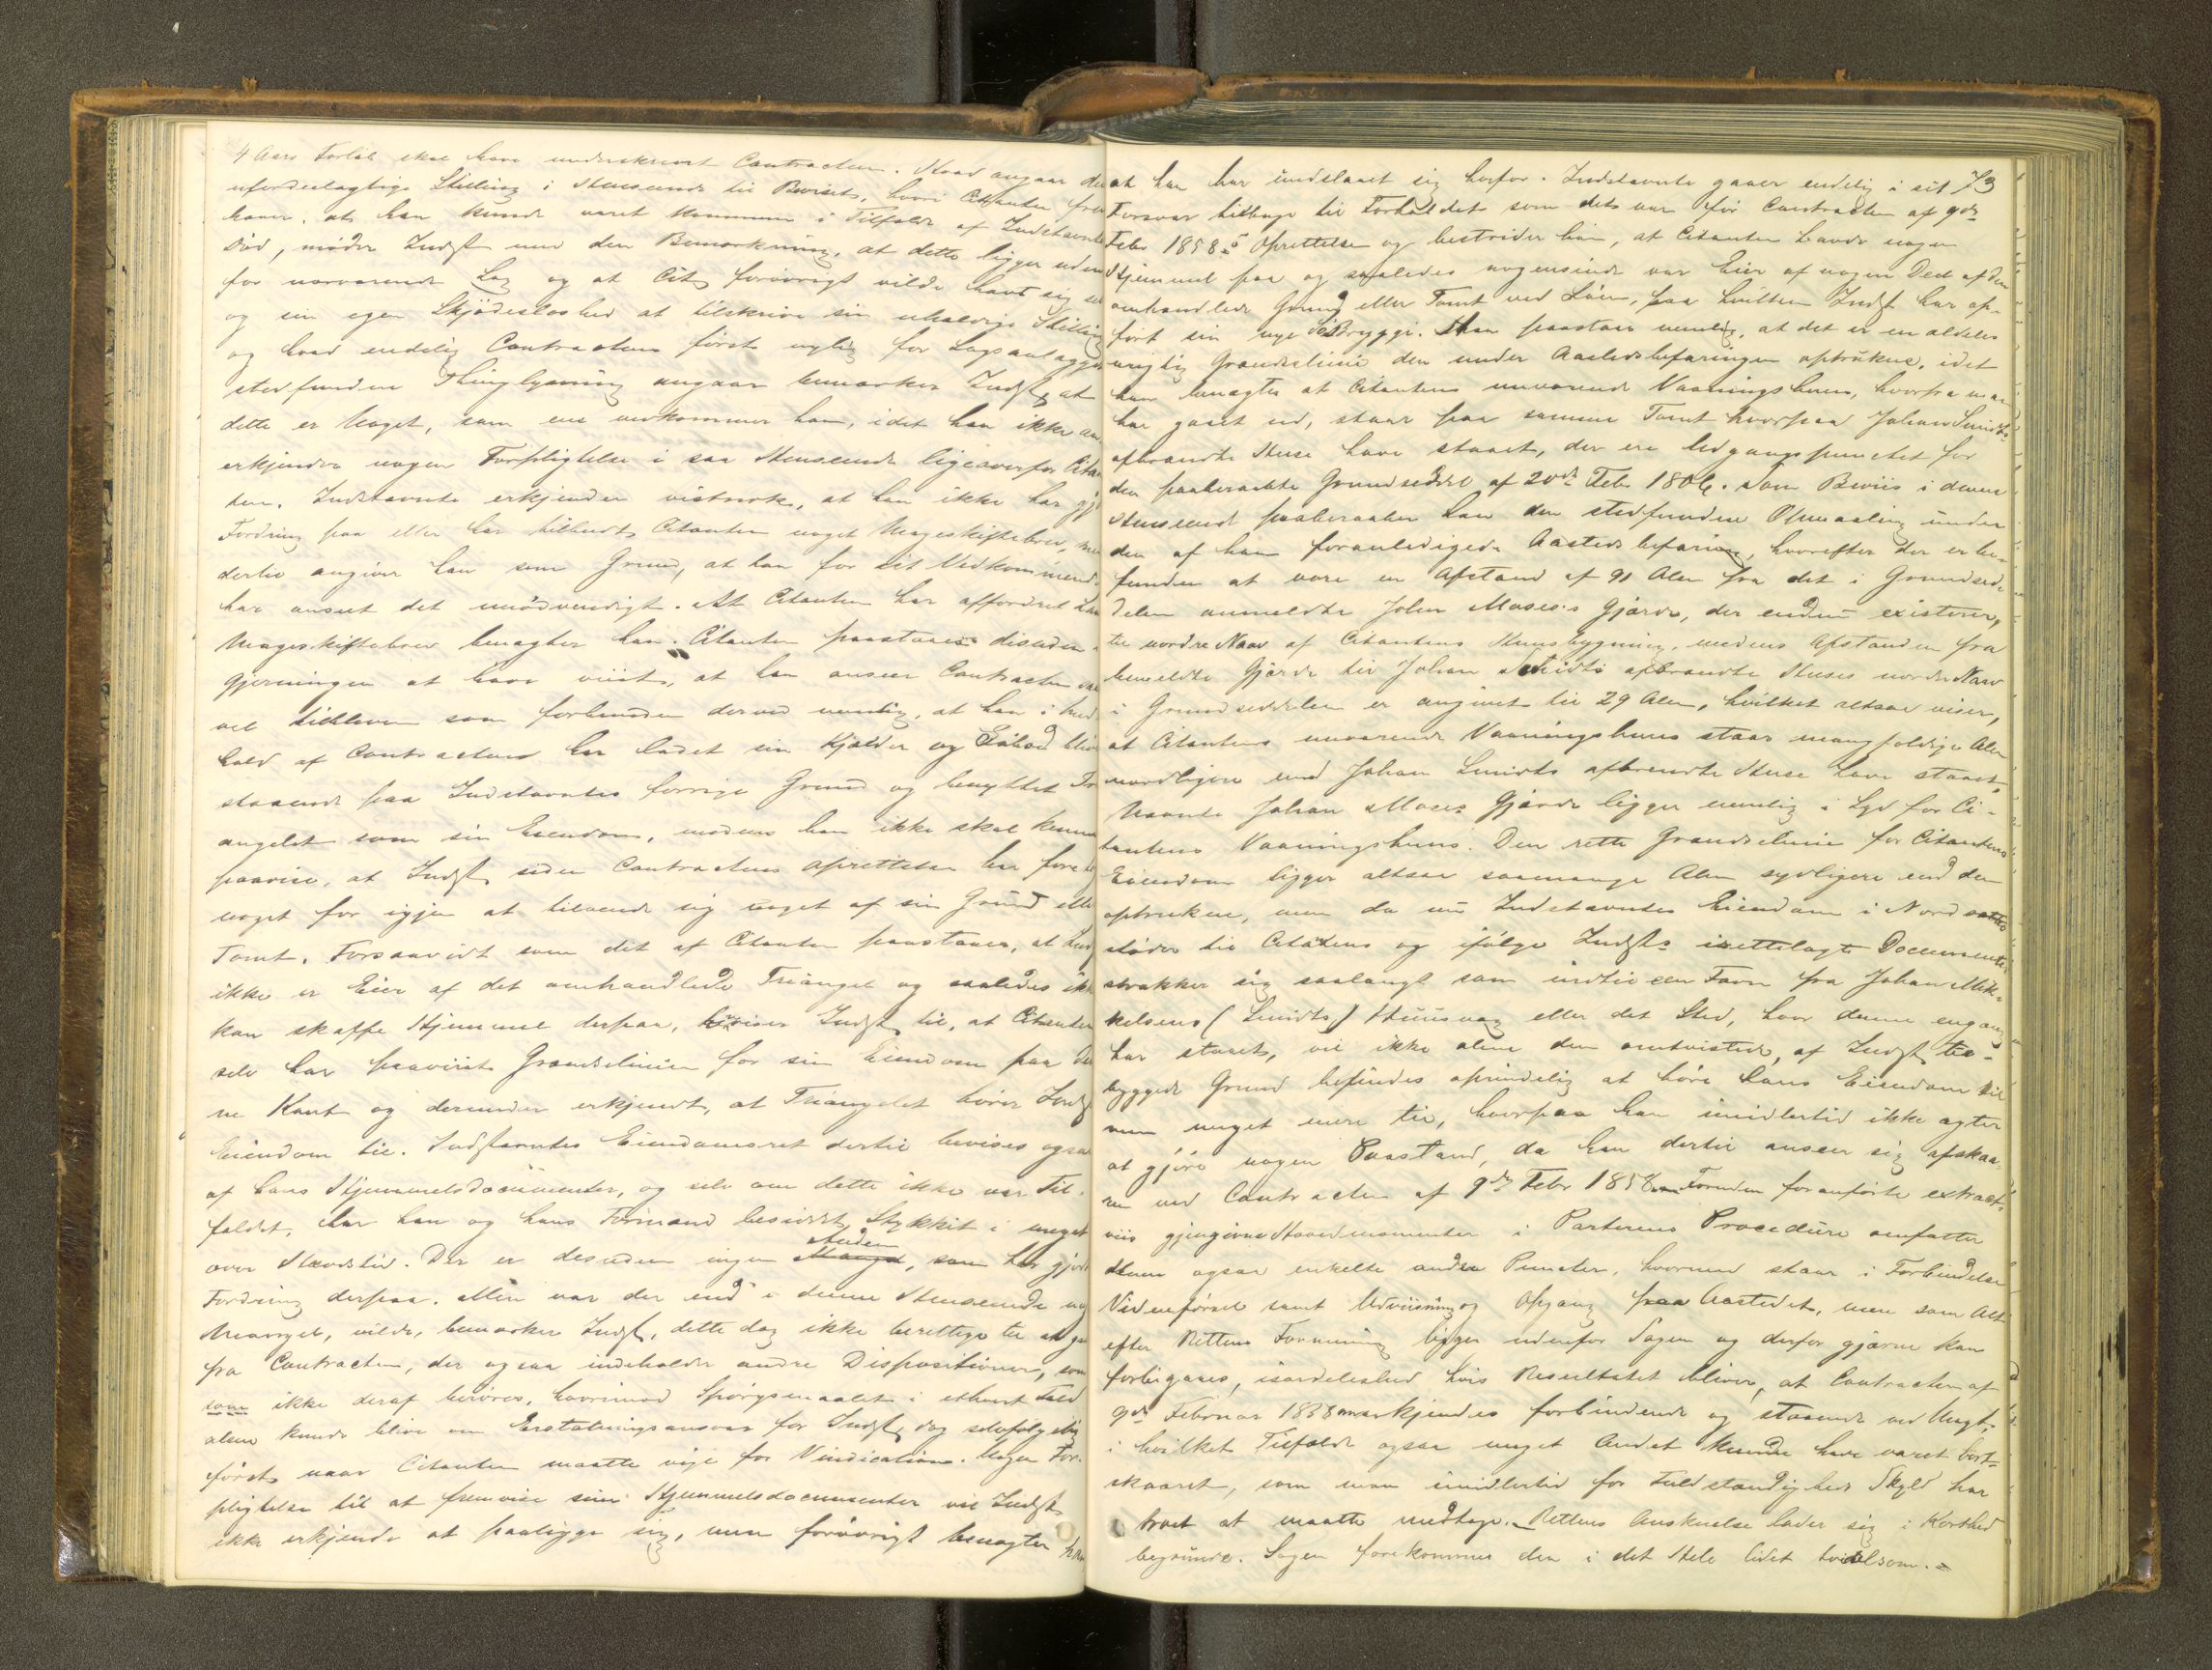 4 Aars Forløb skal have underskrevet Contracten. Hvad angaar den
ufordeelagtige Stilling i Henseende til Beviset, hvori Citanten frem
hæver, at han kunde været kommen i Tilfælde af Indstævntes
Død, møder Indst med den Bemærkning, at dette ligger uden
for nærværende Sag og at Cit forøvrigt vilde havt sig selv
og sin egen Skjødesløshed at tilskrive sin uheldige Stilling
og hvad endelig Contractens først nylig før Sagsanlægget
stedfundne Thinglysning angaar bemærker Indst, at
dette er Noget, som ene vedkommer ham, idet han ikke an
erkjender nogen Forpligtelse i saa Henseende ligeoverfor Citan
ten. Indstævnte erkjender vistnok, at han ikke har gjort
Fordring paa eller har tilbudt Citanten noget Mageskiftebrev, men
dertil angiver han som Grund, at han for sit Vedkommende
har anseet det unødvendigt. At Citanten har affordret ham
Mageskiftebrev benægter han. Citanten paastaaes desuden i
Gjerningen at have viist, at han anseer Contracten saa
vel tilbleven som forbunden derved nemlig, at han i Hen
hold af Contracten har ladet sin Kjælder og Søbod blive
staaende paa Indstævntes forrige Grund og benyttet Tri
angelet som sin Eiendom, medens han ikke skal kunne
paavise, at Indst siden Contractens Oprettelse har foretaget
noget for igjen at tilvende sig noget af sin Grund eller
Tomt. Forsaavidt som det af Citanten paastaaes, at Indst
ikke er Eier af det omhandlede Triangel og saaledes ikke
kan skaffe Hjemmel derpaa, henviser Indst til, at Citanten
selv har paaviist Grændselinien for sin Eiendom paa den
ne Kant og derunder erkjendt, at Triangelet hører Indst
Eiendom til. Indstævntes Eiendomsret dertil bevises ogsaa
af hans Hjemmelsdocumenter, og selv om dette ikke var Til-
fældet, har han og hans Formænd besiddet Stykket i meget
over Hævdstid. Der er desuden ingen Anden, som har gjort
Fordring derpaa. Men var der end i denne Henseende nogen
Mangel, vilde, bemærker Indst, dette dog ikke berettige til at gaa
fra Contracten, der ogsaa indeholder andre Dispositioner, som
som ikke deraf berøres, hvorimod Spørgsmaalet i ethvert Fald
alene kunde blive om Erstatningsansvar for Indst, dog selvfølgelig
først naar Citanten maatte vige for Vindication. Nogen For-
pligtelse til at fremvise sine Hjemmelsdocumenter vil Indst
ikke erkjende at paaligge sig, men forøvrigt benægter han
73
at han har undslaaet sig herfor. Indstævnte gaaer endelig i sit
Forsvar tilbage til Forholdet som det var før Contracten af 9de
Febr 1858s Oprettelse og bestrider han, at Citanten havde nogen
Hjemmel paa og saaledes nogensinde var Eier af nogen Deel af den
omhandlede Grund eller Tomt ved Søen, paa hvilken Indst har op-
ført sin nye Søbrygge. Han paastaar nemlig, at det er en aldeles
urigtig Grændselinie den under Aastedsbefaringen optrukne, idet
han benægter at Citantens nuværende Vaaningshuus, hvorfra man
har gaaet ud, staar paa samme Tomt hvorpaa Johan Smidts
afbrændte Huse have staaet, der ere Udgangspunctet for
den paaberaabte Grundseddel af 20de Febr 1806. Som Beviis i denne
Henseende paaberaaber han den stedfundne Opmaaling under
den af ham foranledigede Aastedsbefaring, hvorefter der er be-
funden at være en Afstand af 91 Alen fra det i Grundsed-
delen anmeldte Johan Moses's Gjærde, der endnu existerer,
til nordre Naav af Citantens Huusbygning, medens Afstanden fra
bemeldte Gjærde til Johan Smidts afbrændte Huses nordre Naav
i Grundseddelen er angivet til 29 Alen, hvilket altsaa viser,
at Citantens nuværende Vaaningshuus staar mangfoldige Alen
nordligere end Johan Smidts afbrændte Huse have staaet,
Nævnte Johan Moses Gjærde ligger nemlig i Syd for Ci-
tantens Vaaningshuus. Den rette Grændselinie for Citantens
Eiendom ligger altsaa saamange Alen sydligere end den
optrukne, men da nu Indstævntes Eiendom i Nord
støder til Citatens og ifølge Indsts irettelagte Documenter
strækker sig saalangt som indtil een Favn fra Johan Mik-
kelsens (Smidts) Huusvæg eller det Sted, hvor denne engang
har staaet, vil ikke alene den omtvistede, af Indst be-
byggede Grund befindes oprindelig at høre hans Eiendom til
men meget mere til, hvorpaa han imidlertid ikke agter
at gjøre nogen Paastand, da han dertil anseer sig afskaa-
ren ved Contracten af 9de Febr 1858. Foruden foranførte extract-
viis gjengivne Hovedmomenter i Parternes Procedure omfatter
denne ogsaa enkelte andre Puncter, hvormed staar i Forbindelse
Vidneførsel samt Udviisning og Opgang paa Aastedet, men som Alt
efter Rettens Formening ligger udenfor Sagen og derfor gjærne kan
forbigaaes, især­deleshed hvis Resultatet bliver, at Contracten af
9de Februar 1858 anerkjendes forbindende og staaende ved Magt,
i hvilket Tilfælde ogsaa meget Andet kunde have været bort-
skaaret, som man imidlertid for Fuldstændigheds Skyld har
troet at maatte medtage. Rettens Anskuelse lader sig i Korthed
begrunde. Sagen forekommer den i det Hele lidet tvivlsom. =